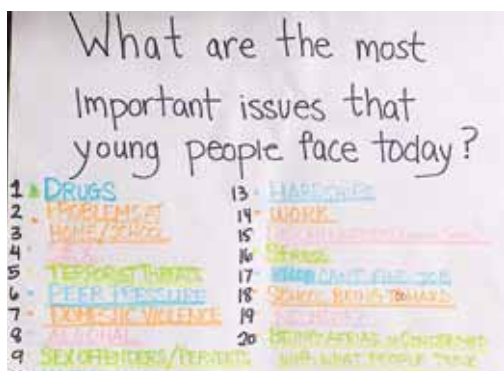 What are the most
Important issues that
young people face today?
1 DRUGS
2 PROBLEMS AT
3 HOME/SCHOOL
4 SEX
5 TERRORIST THREATS
6 PEER PRESSURE
7 DOMESTIC VIOLENCE
8 ALCOHOL
9 SEX OFFENDERS/PERVERTS
13 HARDSHIPS
14 WORK
15
16 STRESS
17 CANT FIND JOB
18 SCHOOL BEING TOO HARD
19
20 BEING CONCERNED
WITH WHAT PEOPLE THINK